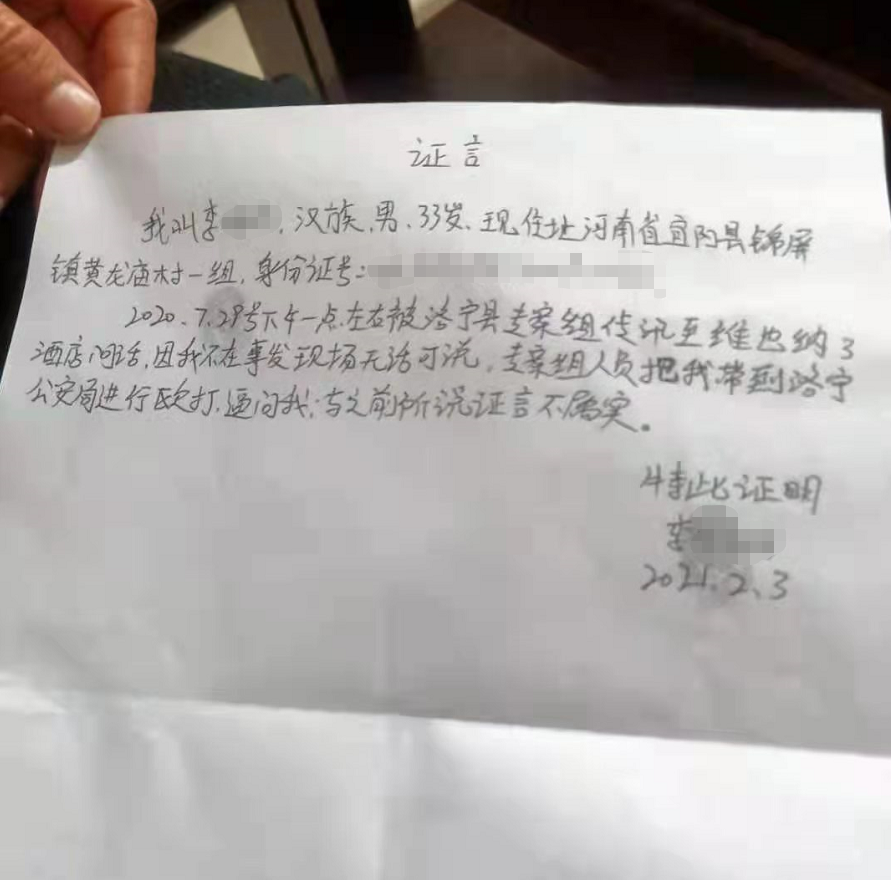 证言
我叫李 ，汉族、男、33岁、现住址河南省宜阳县锦屏
镇黄龙庙村一组，身份证号：
2020.7.29号下午一点左右被洛宁县专案组传讯至维也纳3
酒店问话，因我不在事发现场无话可说，专案组人员把我带到洛宁
公安局进行欧打、逼问我，与之前所说证言不属实。
特此证明
李
2021.2.3